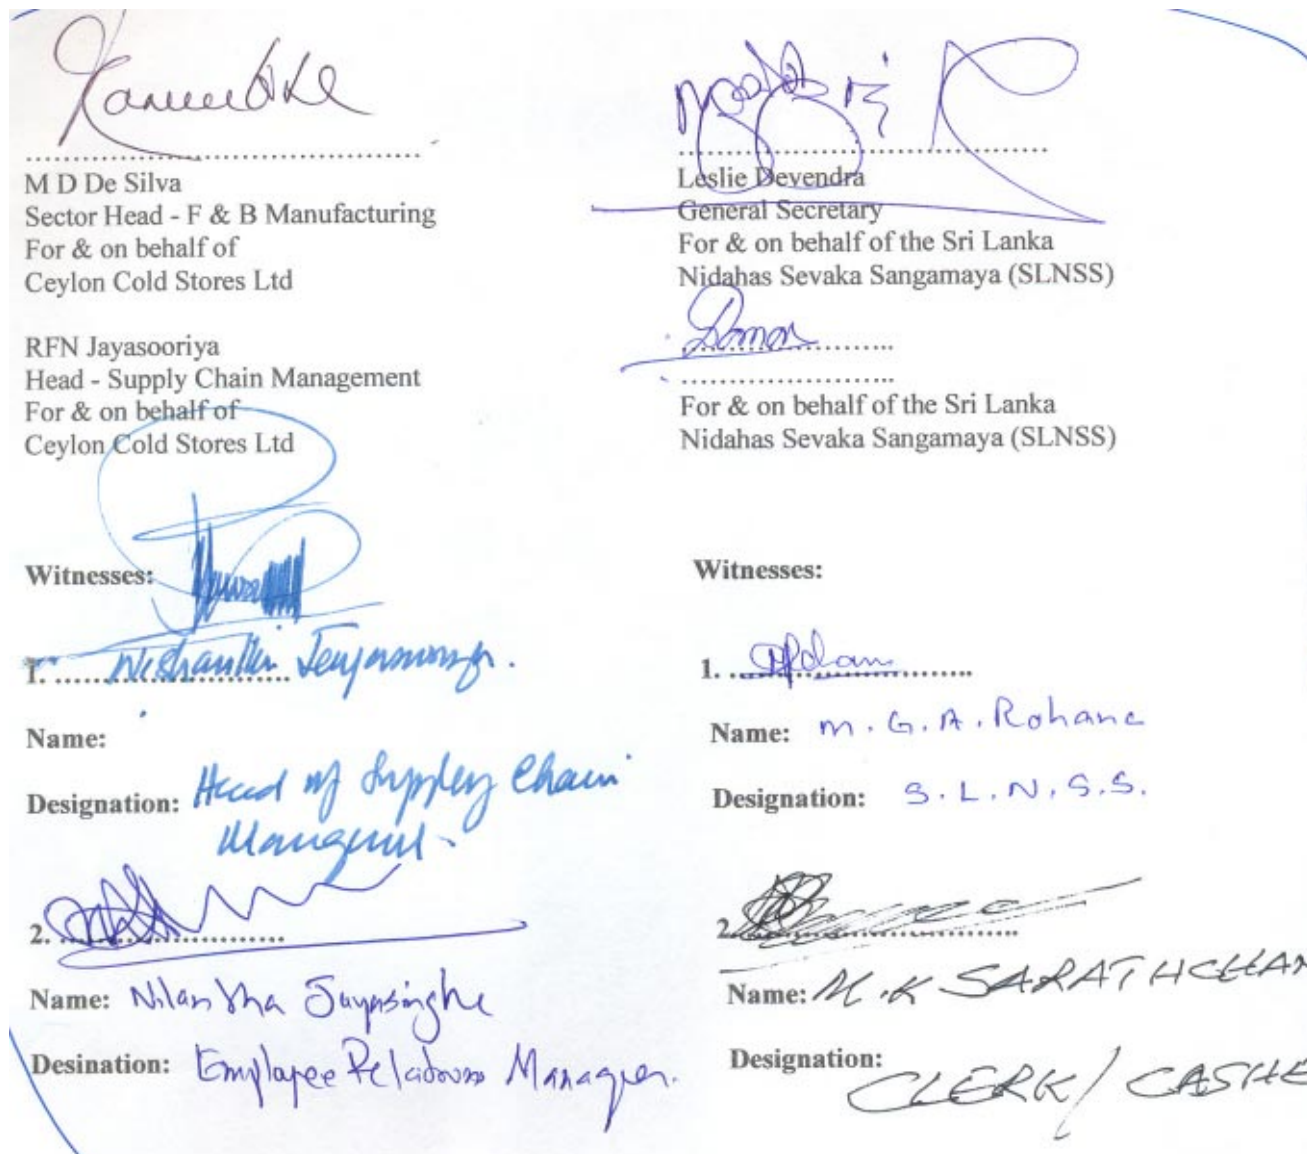 M D De Silva
Sector Head - F & B Manufacturing
For & on behalf of
Ceylon Cold Stores Ltd
RFN Jayasooriya
Head - Supply Chain Management
For & on behalf of
Ceylon Cold Stores Ltd
Witnesses:
1. ..............................
Name:
Designation: Head of Supply Chain
2. ..............................
Name: Nilantha Jayasinghe
Desination: Employee Relations Manager.
Leslie Devendra
General Secretary
For & on behalf of the Sri Lanka
Nidahas Sevaka Sangamaya (SLNSS)
For & on behalf of the Sri Lanka
Nidahas Sevaka Sangamaya (SLNSS)
Witnesses:
1. ..............................
Name: M.G.A.Rohana
Designation: S.L.N.S.S.
2. ..............................
Name: M.K SARATHCHAN
Designation: CLERK/CASHE